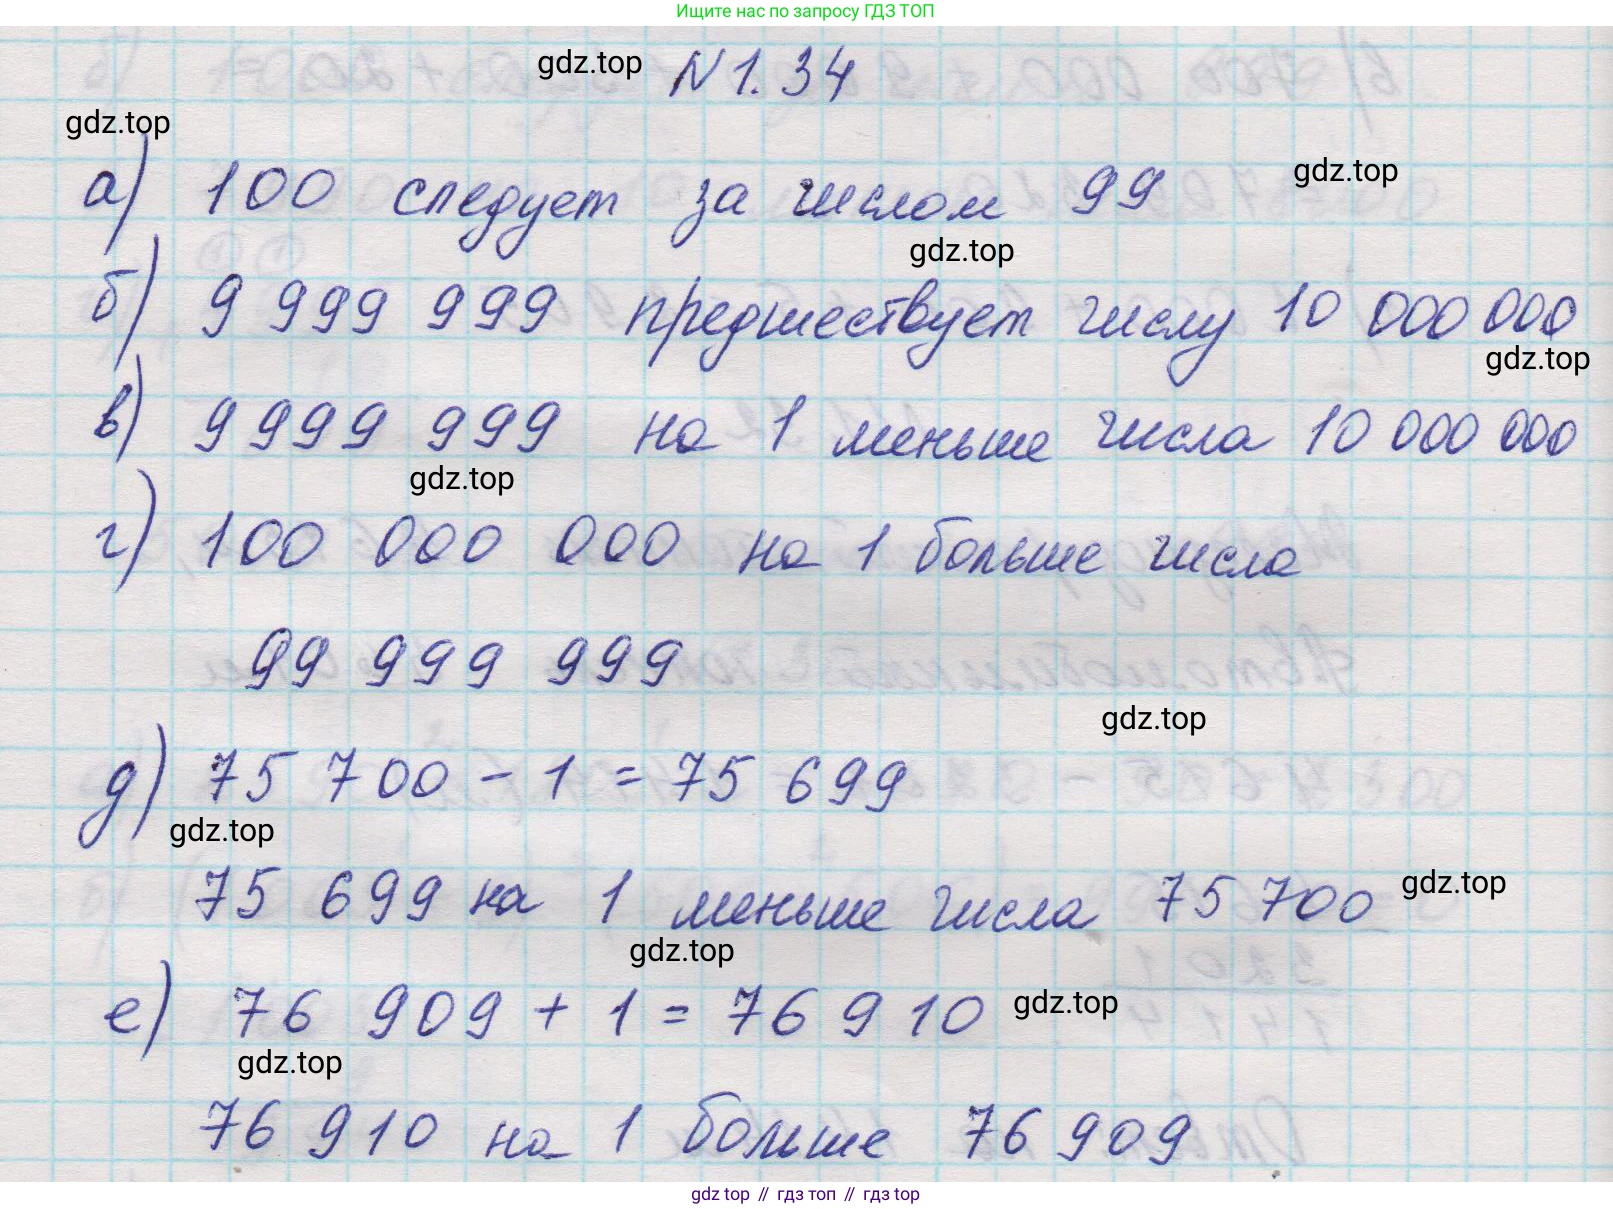 Ищите нас по запросу ГДЗ ТОП
gdz.top
N 1.34
gdz.top
gdz.top
а) 100 следует за числом 99
gdz.top
б) 9 999 999 предшествует числу 10 000 000
gdz.top
в) 9 999 999 на 1 меньше числа 10 000 000
gdz.top
г) 100 000 000 на 1 больше числа
99 999 999
gdz.top
д) 75 700 - 1 = 75 699
gdz.top
75 699 на 1 меньше числа 75 700
gdz.top
gdz.top
е) 76 909 + 1 = 76 910
gdz.top
gdz.top
76 910 на 1 больше 76 909
gdz top // гдз топ // гдз top